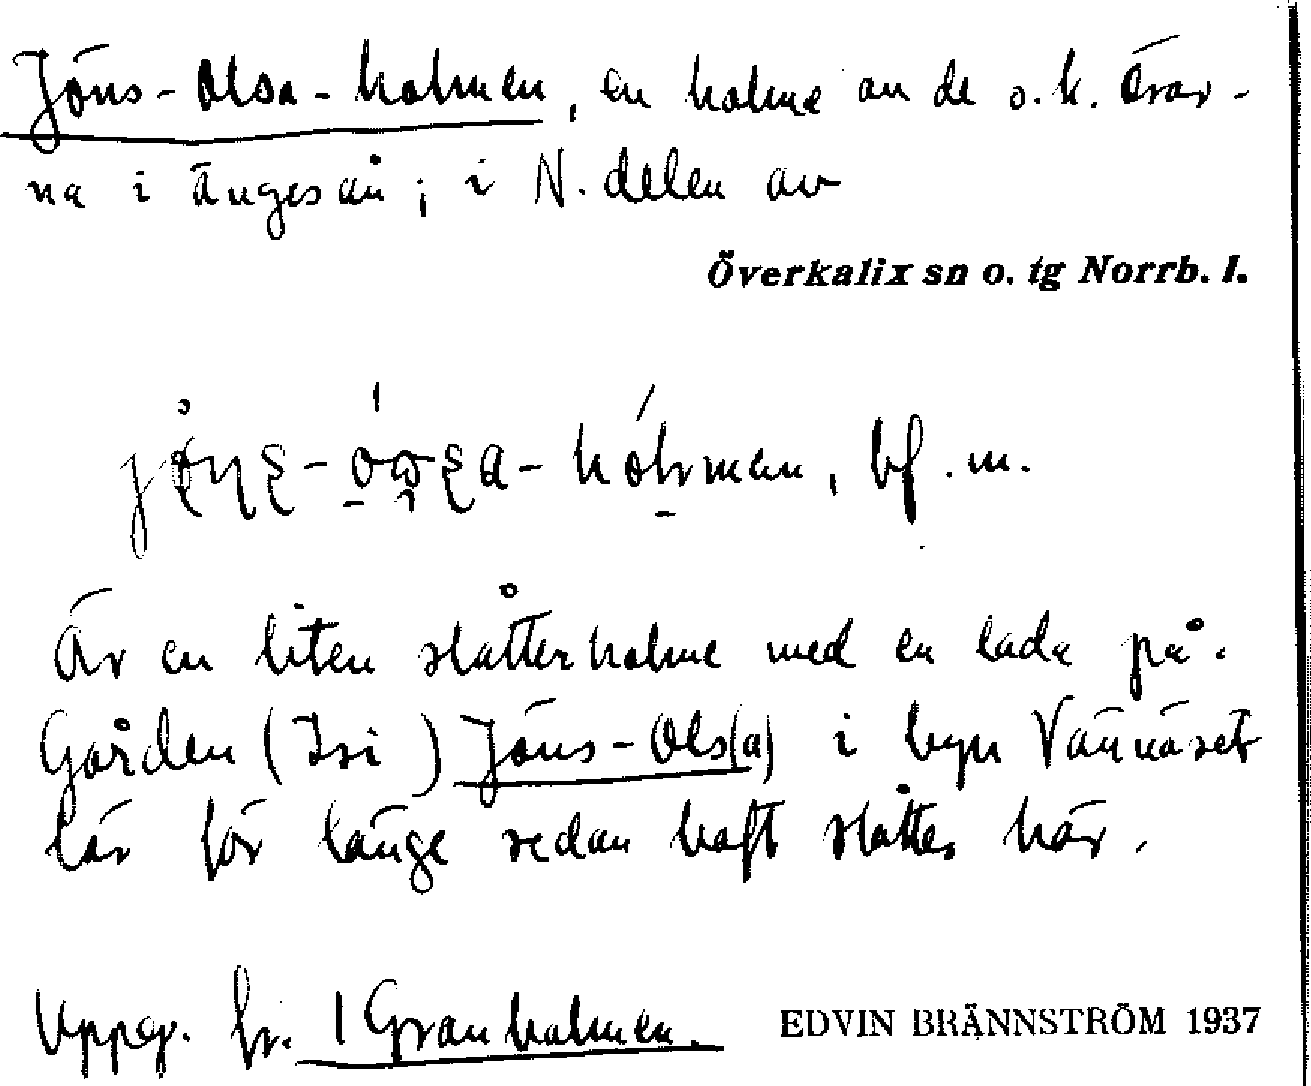 Jöns-Olsa-holmen, en holme av de s.k. Örar-
na i Ängesån; i N. delen av
Överkalix sn o. tg Norrb. l.
bf. m.
Är en liten slåtterholme med en lada på.
Gården (Isi) Jöns-Ols(a) i byn Vännäset
lär för länge sedan haft slåtter här.
Uppg. fr. 1 Granholmen.
EDVIN BRÄNNSTRÖM 1937